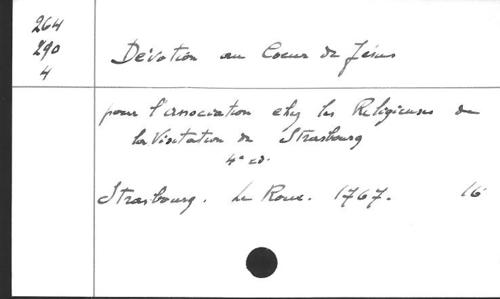 264
290
4
Dévotion au Coeur de Jésus
pour l'association chez les Religieuses de
la Visitation de Strasbourg
4e ed.
Strasbourg. Le Roux. 1767. 16